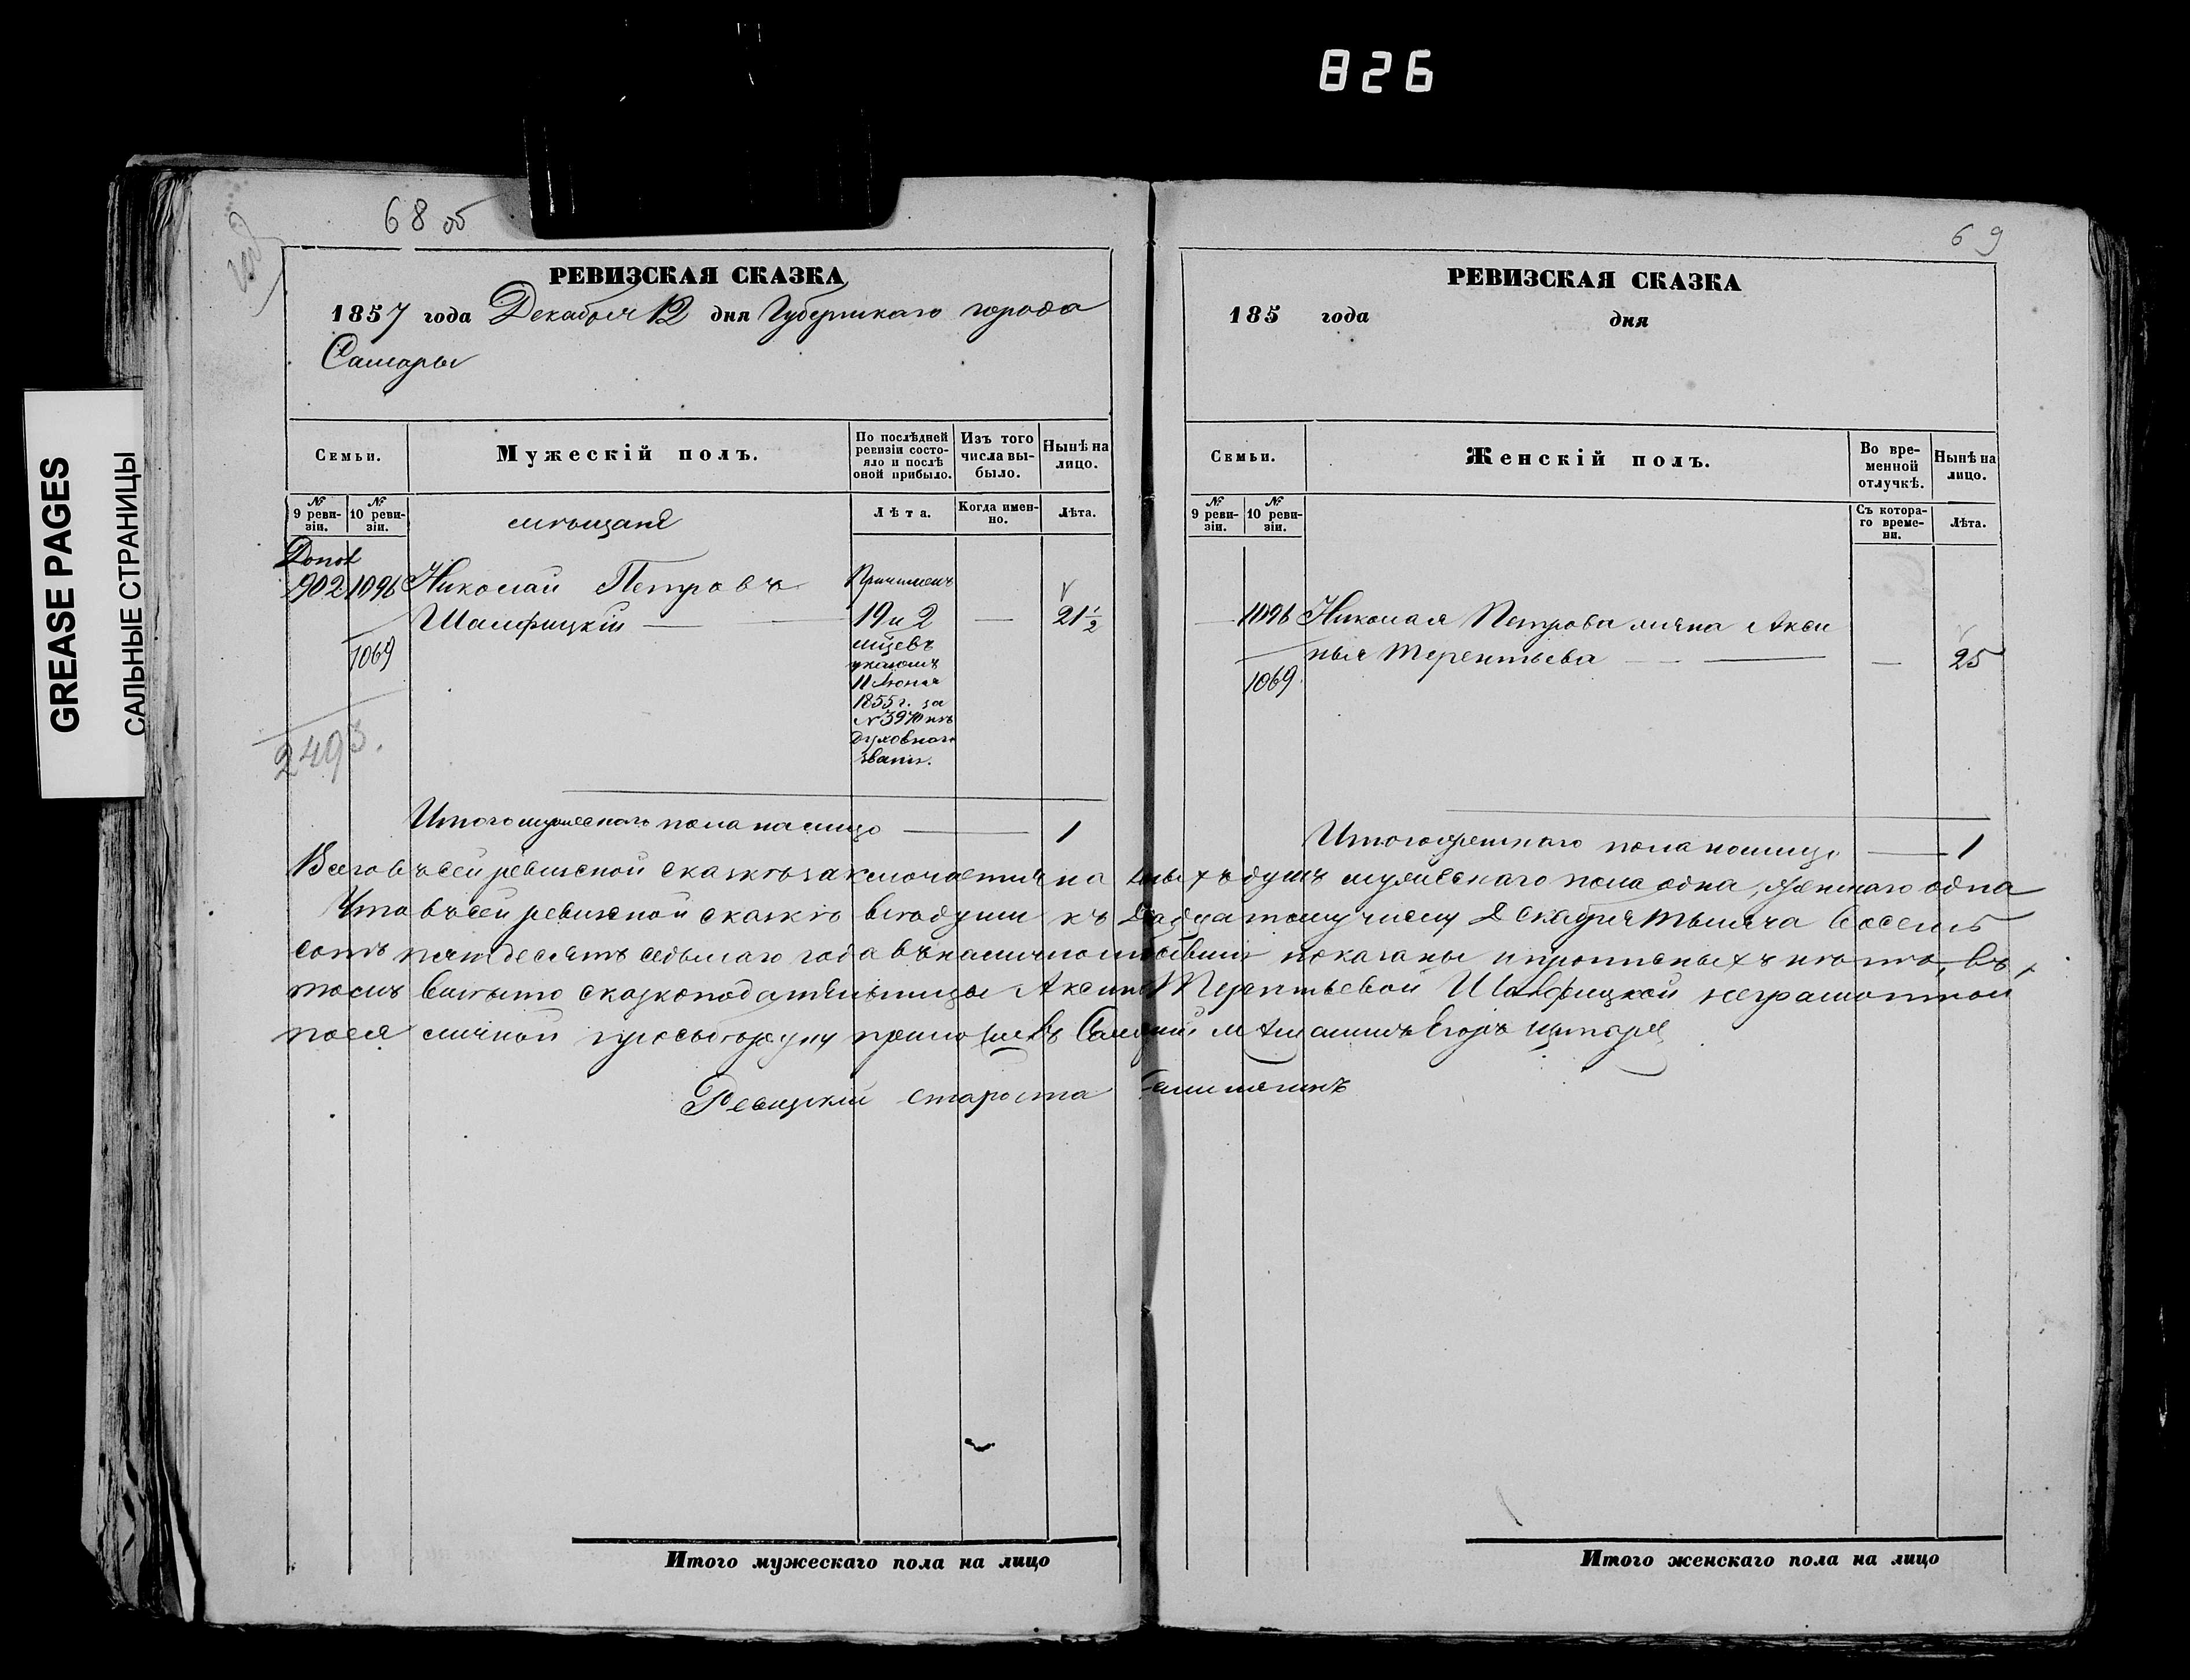 826
GREASE PAGES
САЛЬНЫЕ СТРАНИЦЫ
68 об
РЕВИЗСКАЯ СКАЗКА
1857 года Декабря 12 дня Губернскаго города
Самары
Семьи.
Мужескій полъ.
По послѣдней ревизіи состояло и послѣ оной прибыло.
Изъ того числа выбыло.
Нынѣ на лицо.
№ 9 ревизіи.
№ 10 ревизіи.
мѣщане
Лѣта.
Когда именно.
Лѣта.
Допол
902 1096 Николай Петровъ Причисленъ
19 и 2 — 21 1/2
1069
указомъ
11 Июня
1855 г. за
№ 3970 изъ
духовнаго
званія.
2493.
Итого мужескаго пола на лицо — 1
69
РЕВИЗСКАЯ СКАЗКА
185 года дня
Семьи.
Женскій полъ.
Во временной отлучкѣ.
Нынѣ на лицо.
№ 9 ревизіи.
№ 10 ревизіи.
Съ котораго времени.
Лѣта.
— 1096 Николая Петрова жена Акси
нья Терентьева — — 25
1069
Итого женскаго пола на лицо — 1
Всего въ сей ревизской сказкѣ заключается на личныхъ душъ мужескаго пола одна, женскаго одна
Что въ сей ревизской сказкѣ всѣ души къ двадцатому числу Декабря тысяча восемь
сотъ пятдесятъ седьмаго года въ наличности бывшія показаны и прописныхъ нѣтъ, въ
томъ вмѣсто сказкоподательницы Аксиньи Терентьевой неграмотной
по ея личной прозьбѣ руку приложилъ Егоръ
староста
Итого мужескаго пола на лицо
Итого женскаго пола на лицо